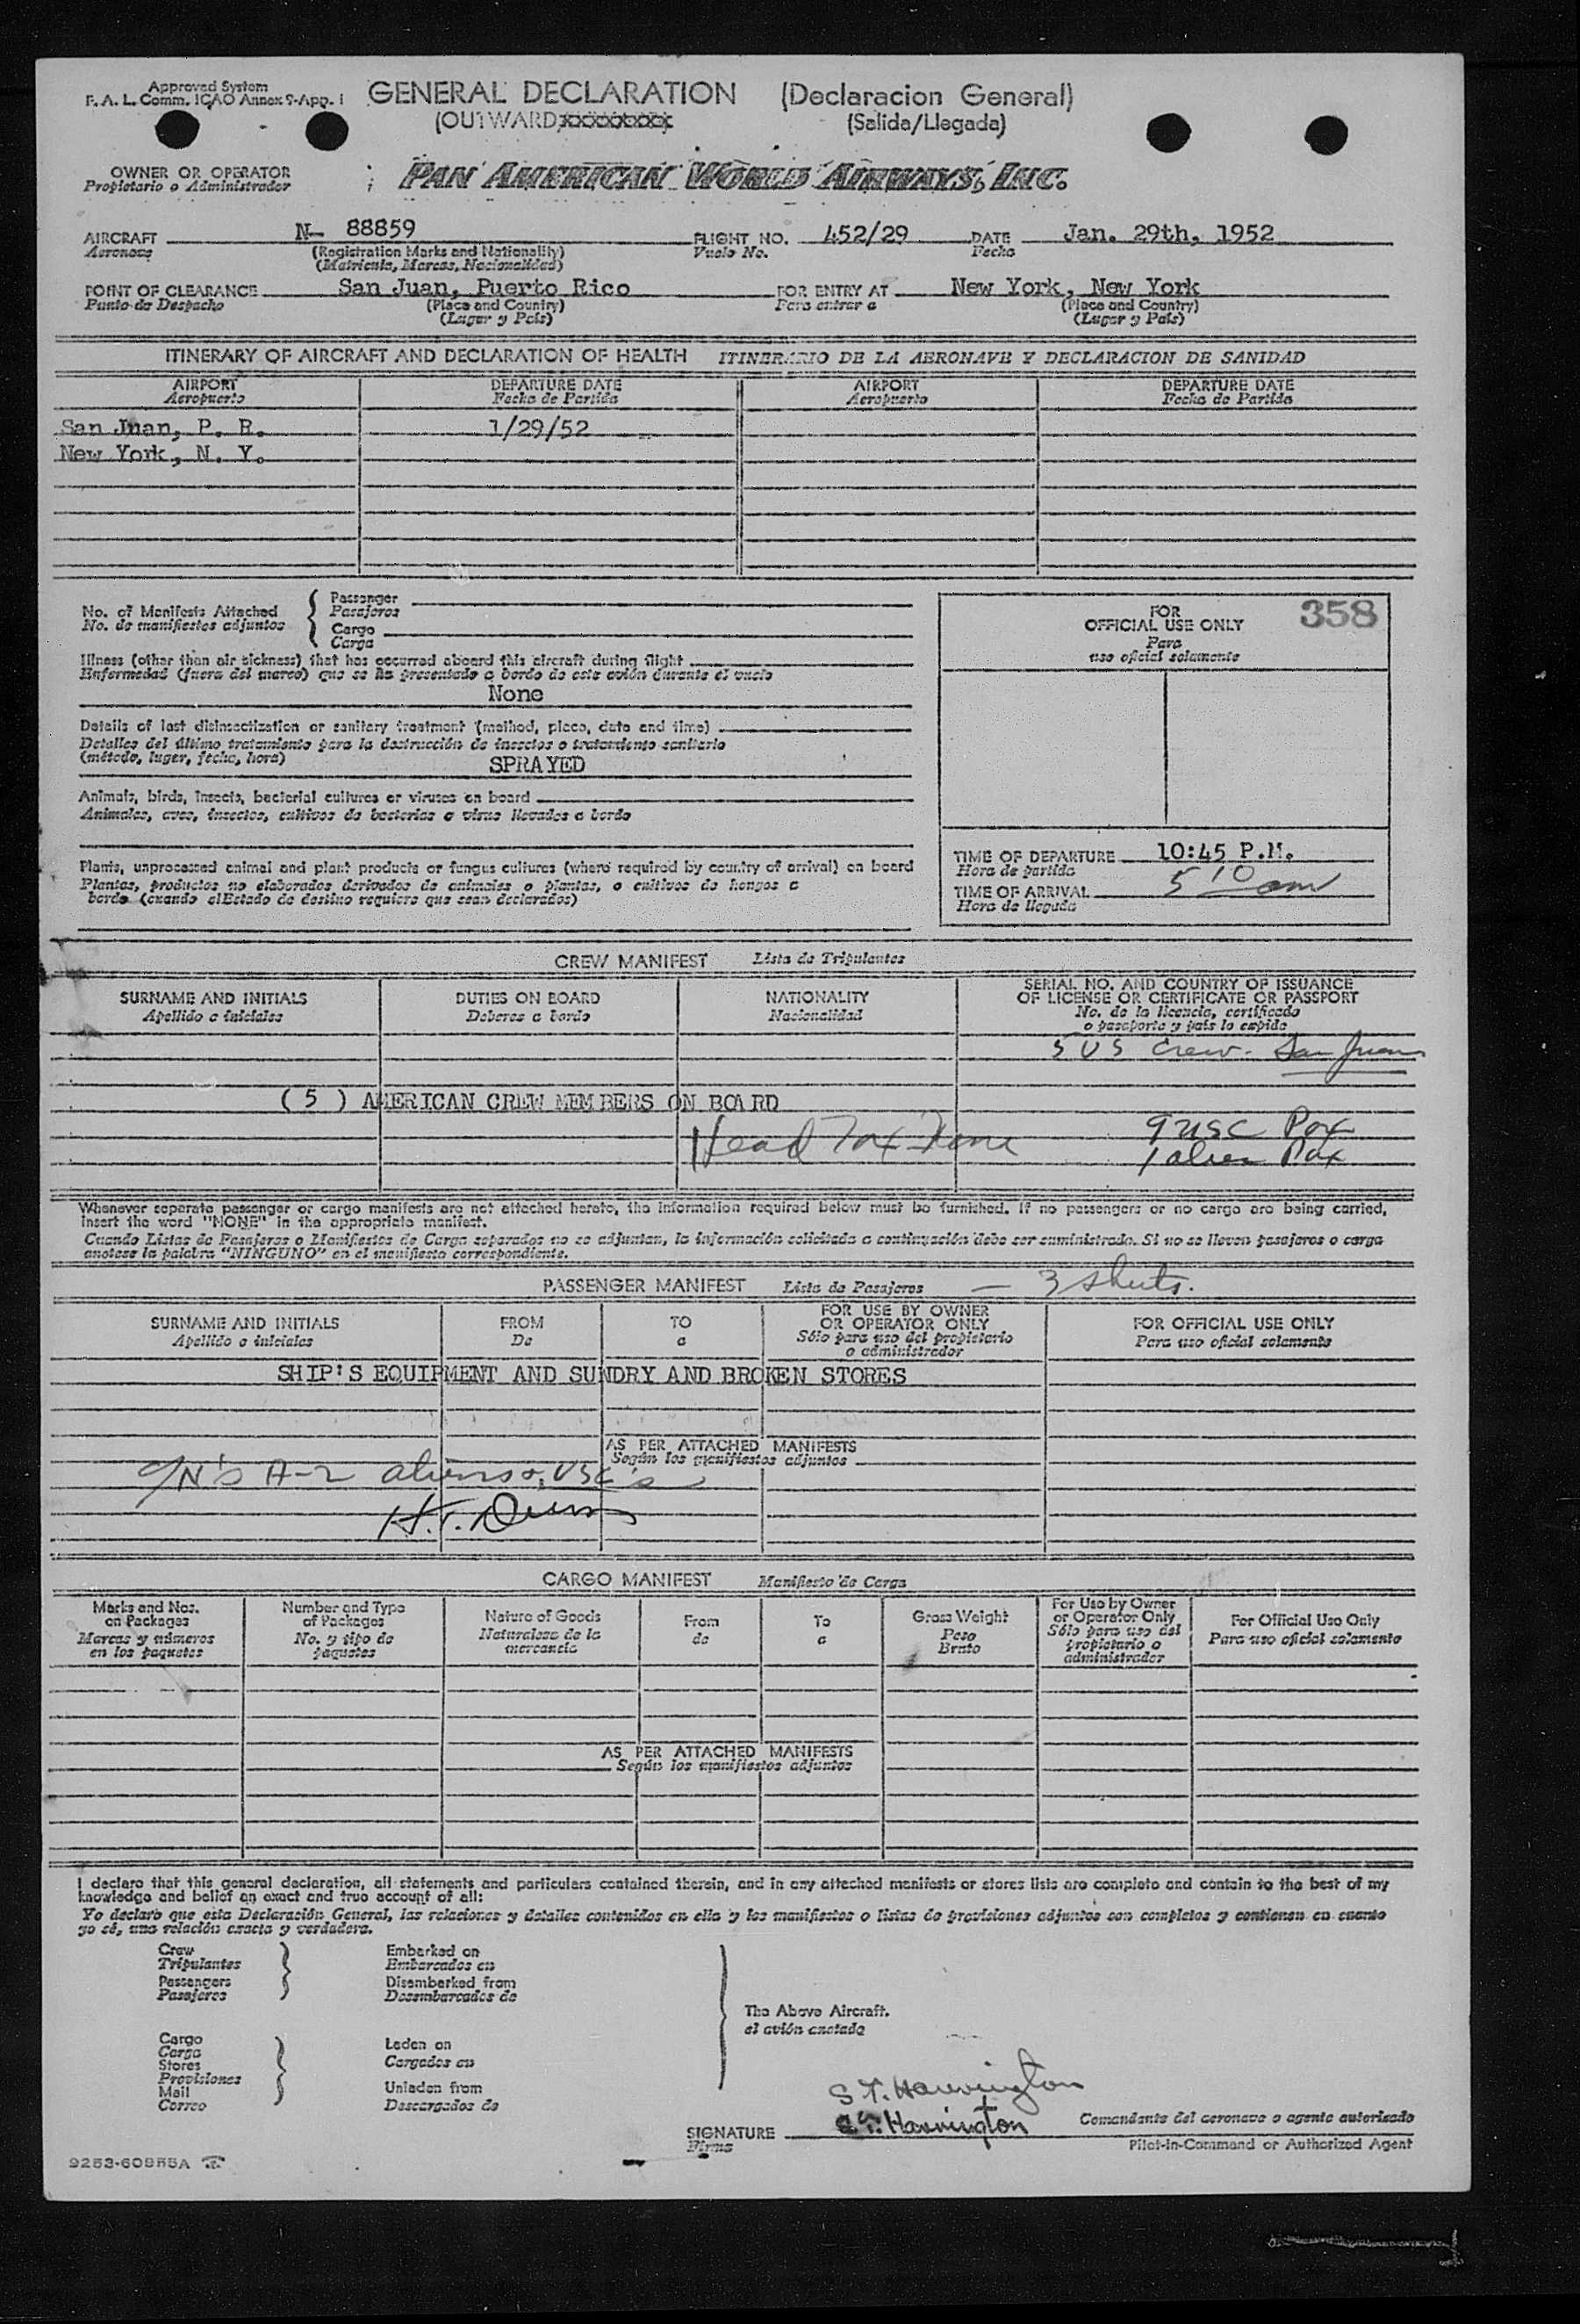 Approved System
F. A. L. Comm. ICAO Annex 9-App. 1
GENERAL DECLARATION (Declaracion General)
(OUTWARD (Salida/Llegada)
OWNER OR OPERATOR
Propietario o Administrador
PAN AMERICAN WORLD AIRWAYS, INC.
AIRCRAFT N- 88859 FLIGHT NO. 452/29 DATE Jan. 29th, 1952
Aeronave (Registration Marks and Nationality) Vuelo No. Fecha
(Matricula, Marcas, Nacionalidad)
POINT OF CLEARANCE San Juan, Puerto Rico FOR ENTRY AT New York, New York
Punto de Despacho (Place and Country) Para entrar a (Place and Country)
(Lugar y País) (Lugar y País)
ITINERARY OF AIRCRAFT AND DECLARATION OF HEALTH ITINERARIO DE LA AERONAVE Y DECLARACION DE SANIDAD
AIRPORT DEPARTURE DATE AIRPORT DEPARTURE DATE
Aeropuerto Fecha de Partida Aeropuerto Fecha de Partida
San Juan, P. R. 1/29/52
New York, N. Y.
No. of Manifests Attached
No. de manifiestos adjuntos
Passenger
Pasajeros
Cargo
Carga
FOR
OFFICIAL USE ONLY
Para
uso oficial solamente
358
Illness (other than air sickness) that has occurred aboard this aircraft during flight
Enfermedad (fuera del mareo) que se ha presentado a bordo de este avión durante el vuelo
None
Details of last disinsectization or sanitary treatment (method, place, date and time)
Detalles del último tratamiento para la destrucción de insectos o tratamiento sanitario
(método, lugar, fecha, hora)
SPRAYED
Animals, birds, insects, bacterial cultures or viruses on board
Animales, aves, insectos, cultivos de bacterias o virus llevados a bordo
Plants, unprocessed animal and plant products or fungus cultures (where required by country of arrival) on board
Plantas, productos no elaborados derivados de animales o plantas, o cultivos de hongos a
bordo (cuando elEstado de destino requiera que sean declarados)
TIME OF DEPARTURE 10:45 P.M.
Hora de partida
TIME OF ARRIVAL 5 10 am
Hora de llegada
CREW MANIFEST Lista de Tripulantes
SURNAME AND INITIALS DUTIES ON BOARD NATIONALITY SERIAL NO. AND COUNTRY OF ISSUANCE
OF LICENSE OR CERTIFICATE OR PASSPORT
Apellido e iniciales Deberes a bordo Nacionalidad No. de la licencia, certificado
o pasaporte y país lo expide
5 US Crew. San Juan
( 5 ) AMERICAN CREW MEMBERS ON BOARD
Head Tax None
9 USC Pax
1 alien Pax
Whenever separate passenger or cargo manifests are not attached hereto, the information required below must be furnished. If no passengers or no cargo are being carried,
insert the word "NONE" in the appropriate manifest.
Cuando Listas de Pasajeros o Manifiestos de Carga separados no se adjuntan, la información solicitada a continuación debe ser suministrada. Si no se lleven pasajeros o carga
anotese la palabra "NINGUNO" en el manifiesto correspondiente.
PASSENGER MANIFEST Lista de Pasajeros — 3 sheets.
SURNAME AND INITIALS FROM TO FOR USE BY OWNER
OR OPERATOR ONLY FOR OFFICIAL USE ONLY
Apellido e iniciales De a Sólo para uso del propietario
o administrador Para uso oficial solamente
SHIP'S EQUIPMENT AND SUNDRY AND BROKEN STORES
AS PER ATTACHED MANIFESTS
Según los manifiestos adjuntos
A-2 aliens USC's
CARGO MANIFEST Manifiesto de Carga
Marks and Nos.
on Packages
Marcas y números
en los paquetes
Number and Type
of Packages
No. y tipo de
paquetes
Nature of Goods
Naturaleza de la
mercancia
From
de
To
a
Gross Weight
Peso
Bruto
For Use by Owner
or Operator Only
Sólo para uso del
propietario o
administrador
For Official Use Only
Para uso oficial solamente
AS PER ATTACHED MANIFESTS
Según los manifiestos adjuntos
I declare that this general declaration, all statements and particulars contained therein, and in any attached manifests or stores lists are complete and contain to the best of my
knowledge and belief an exact and true account of all:
Yo declaro que esta Declaración General, las relaciones y detalles contenidos en ella y los manifiestos o listas de provisiones adjuntos son completos y contienen en cuanto
yo sé, una relación exacta y verdadera.
Crew
Tripulantes
Passengers
Pasajeros
Embarked on
Embarcados en
Disembarked from
Desembarcados de
The Above Aircraft.
el avión anotado
Cargo
Carga
Stores
Provisiones
Mail
Correo
Laden on
Cargados en
Unladen from
Descargados de
S T. Harrington
SIGNATURE S T. Harrington Comandante del aeronave o agente autorizado
Firma Pilot-in-Command or Authorized Agent
9253-60855A